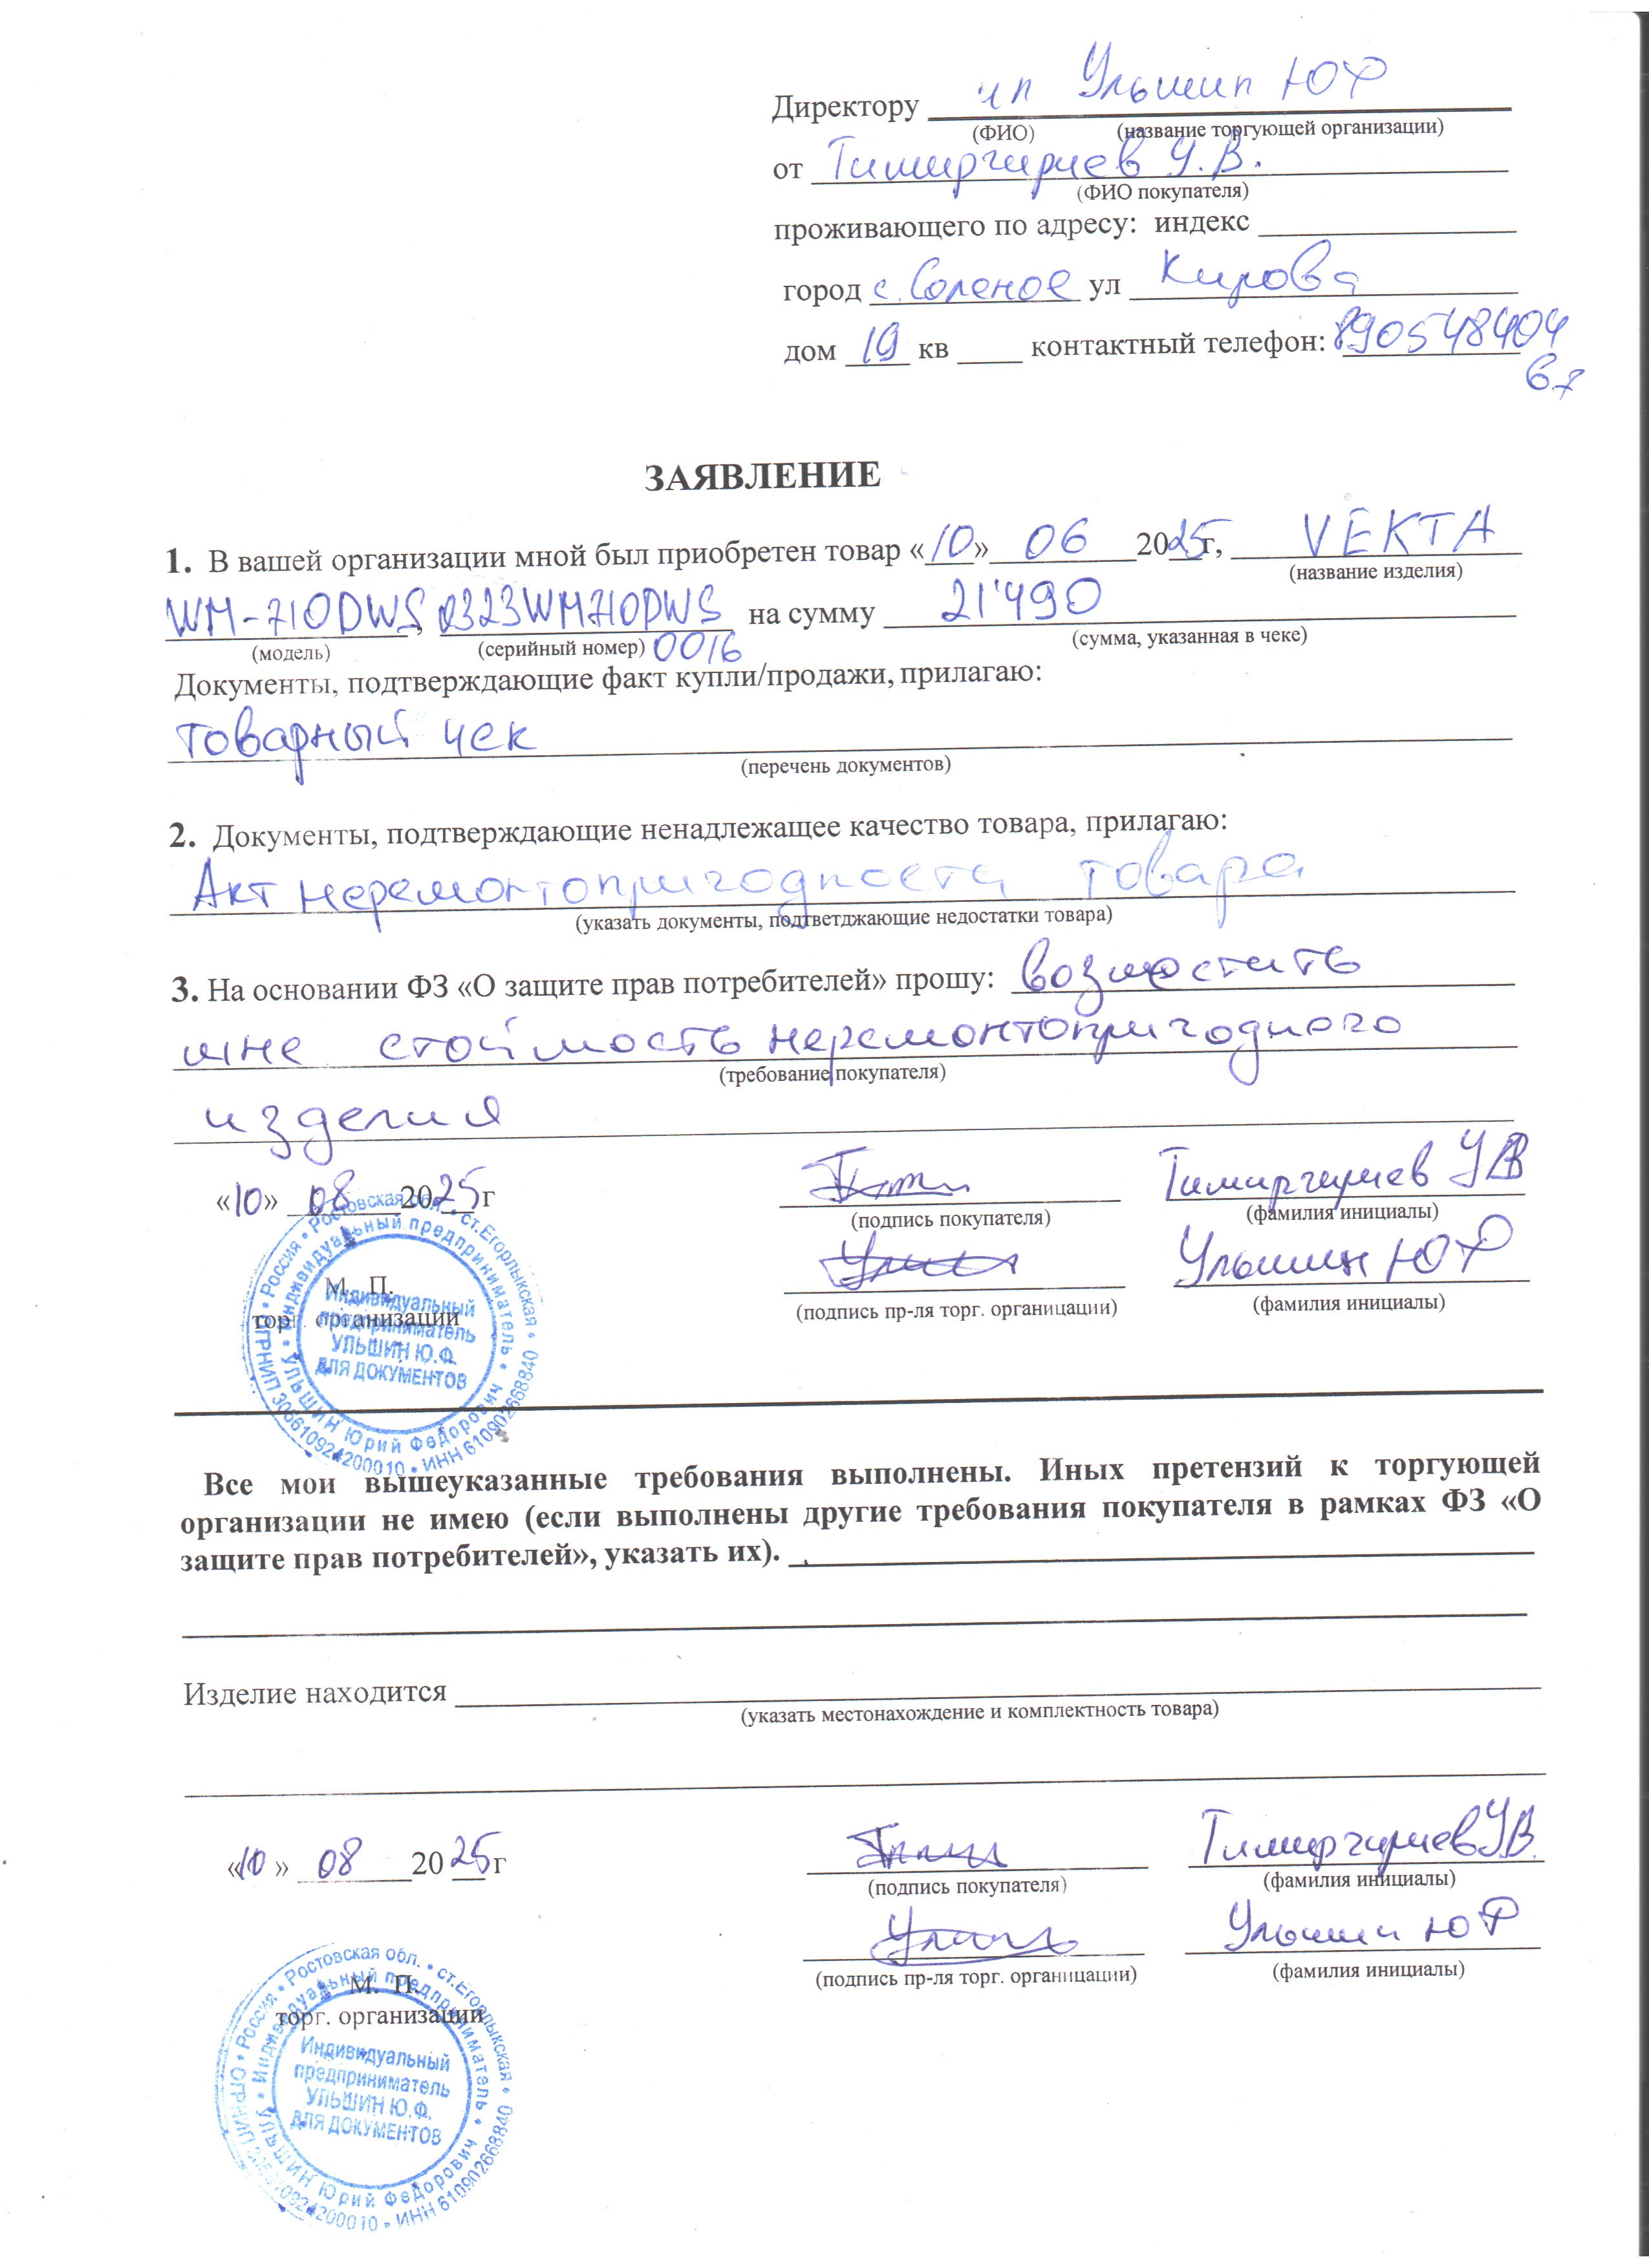 Директору ип Ульшин ЮФ
(ФИО) (название торгующей организации)
от Тимиргириев У.В.
(ФИО покупателя)
проживающего по адресу: индекс
город с. Соленое ул Кирова
дом 19 кв ____ контактный телефон: 8905 48404
67
ЗАЯВЛЕНИЕ
1. В вашей организации мной был приобретен товар «10» 06 2025г, VEKTA
(название изделия)
WM-710DWS, 0323WM710DWS на сумму 21'490
(модель) (серийный номер) 0016 (сумма, указанная в чеке)
Документы, подтверждающие факт купли/продажи, прилагаю:
товарный чек
(перечень документов)
2. Документы, подтверждающие ненадлежащее качество товара, прилагаю:
Акт неремонтопригодности товара
(указать документы, подтветджающие недостатки товара)
3. На основании ФЗ «О защите прав потребителей» прошу: возместить
мне стоймость неремонтопригодного
(требование покупателя)
изделия
«10» 08 2025 г Тимиргириев УВ
(подпись покупателя) (фамилия инициалы)
Ульшин ЮФ
(подпись пр-ля торг. органицации) (фамилия инициалы)
М. П.
торг. организации
Россия • Ростовская обл. • ст.Егорлыкская • ИНН 610902668840 • ОРНИП 306610924200010
Индивидуальный предприниматель • Ульшин Юрий Федорович
Индивидуальный
предприниматель
УЛЬШИН Ю.Ф.
ДЛЯ ДОКУМЕНТОВ
Все мои вышеуказанные требования выполнены. Иных претензий к торгующей
организации не имею (если выполнены другие требования покупателя в рамках ФЗ «О
защите прав потребителей», указать их).
Изделие находится
(указать местонахождение и комплектность товара)
«10» 08 2025г Тимиргириев УВ
(подпись покупателя) (фамилия инициалы)
Ульшин ЮФ
(подпись пр-ля торг. органицации) (фамилия инициалы)
М. П.
торг. организации
Россия • Ростовская обл. • ст.Егорлыкская • ИНН 610902668840 • ОРНИП 306610924200010
Индивидуальный предприниматель • Ульшин Юрий Федорович
Индивидуальный
предприниматель
УЛЬШИН Ю.Ф.
ДЛЯ ДОКУМЕНТОВ